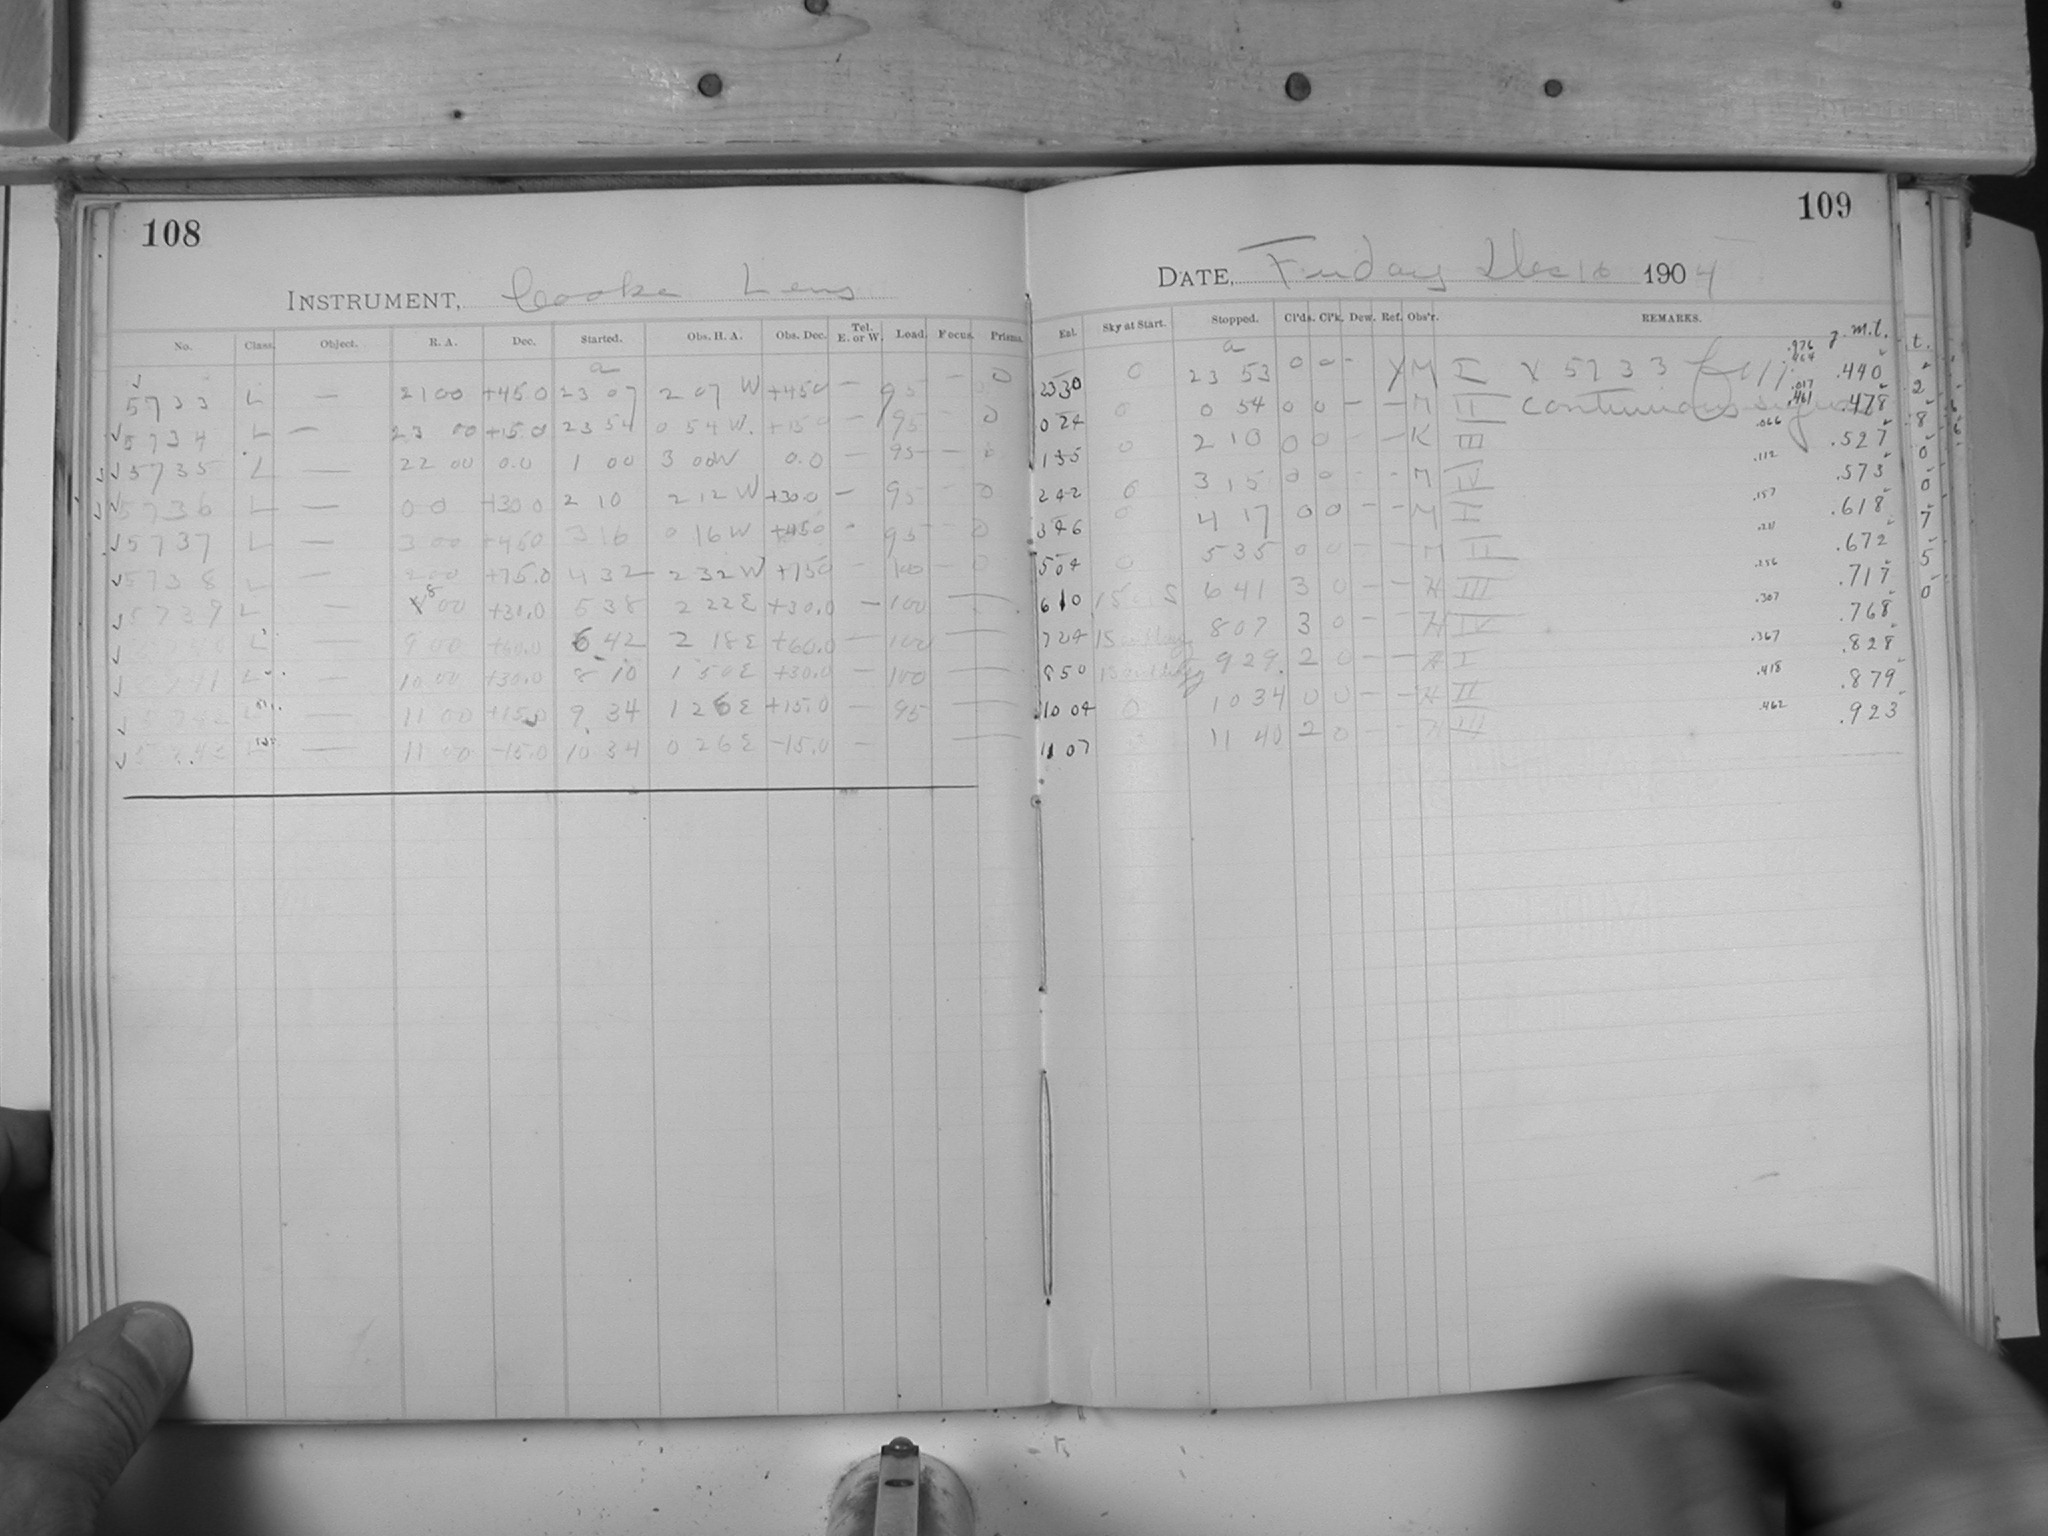 108
INSTRUMENT, Cooke Lens
No. Class. Object. R. A. Dec. Started. Obs. H. A. Obs. Dec. Tel. E. or W. Load. Focus. Prisms.
a
5733 L — 21 00 +45.0 23 07 2 07 W +45.0 — 95 — 0
5734 L — 23 00 +15.0 23 54 0 54 W. +15.0 — 95 — 0
5735 L — 22 00 0.0 1 00 3 00 W 0.0 — 95 —
5736 L — 0 0 +30.0 2 10 2 12 W +30.0 — 95 — 0
5737 L — 3 00 +45.0 3 16 0 16 W +45.0 95 — 0
5738 L — 2 00 +75.0 4 32 2 32 W +75.0 — 100 — 0
5739 L — 8 00 +30.0 5 38 2 22 E +30.0 — 100 —
L — 9 00 +60.0 6 42 2 18 E +60.0 — 100 —
L — 10 00 +30.0 8 10 1 50 E +30.0 — 100 —
L — 11 00 +15.0 9 34 1 26 E +15.0 — 95 —
L — 11 00 -15.0 10 34 0 26 E -15.0 — —
109
DATE, Friday Dec 16 1904
Eal. Sky at Start. Stopped. Cl'ds. Cl'k. Dew. Ref. Obs'r. REMARKS.
g.m.t.
a
2330 0 23 53 0 0 - Y M I X 5733 .976 .440
0 24 0 0 54 0 0 - - M II continuous .017 .461 .478
1 35 0 2 10 0 0 - - K III .066 .527
2 42 0 3 15 0 0 - - M IV .112 .573
3 46 0 4 17 0 0 - - M I .157 .618
5 04 0 5 35 0 0 - - M II .211 .672
6 10 6 41 3 0 - - H III .256 .717
7 24 8 07 3 0 - - H IV .307 .768
8 50 9 29 2 0 - - H I .367 .828
10 04 0 10 34 0 0 - - H II .418 .879
11 07 11 40 2 0 - - H III .462 .923
t.
2
8
0
0
7
5
0